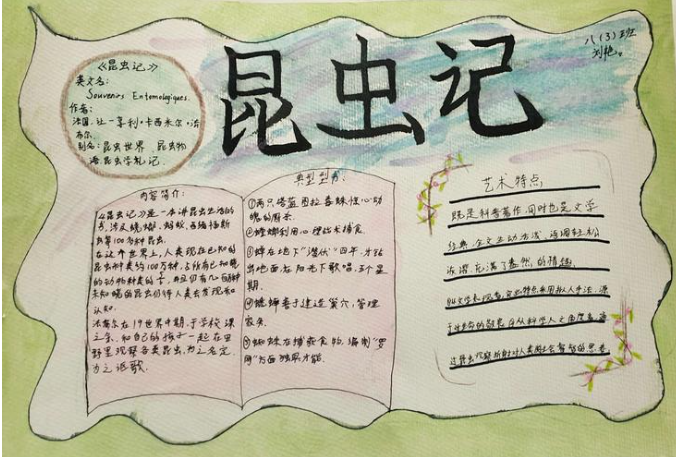 昆虫记
八(3)班
刘艳。
《昆虫记》
英文名:
Souvenirs Entomologiques.
作者:
法国.让-亨利·卡西米尔·法
布尔.
别名:昆虫世界 昆虫物
语.昆虫学札记
内容简介:
《昆虫记》是一本讲昆虫生活的
书,涉及蜣螂,蚂蚁,西绪福斯
虫等100多种昆虫.
在这个世界上,人类现在已知的
昆虫种类约100万种,占所有已知
的动物种类的
未知的昆虫仍待人类去发现和
认知.
法布尔在19世纪中期,于学校课
之余,和自己的孩子一起在田
野里观察各类昆虫,为之定名,
为之讴歌.
典型型书:
①两只塔蓝图拉毒蛛惊心动
魄的厮杀.
②螳螂利用心理战术捕食.
③蝉在地下“潜伏”四年,才钻
出地面在阳光下歌唱五个星
期.
④蟋蟀善于建造巢穴,管理
家务.
⑤蜘蛛在捕获食物,编制“罗
网”方面独具才能.
艺术特点
既是科普著作,同时也是文学
经典,全文生动活泼,语调轻松
诙谐,充满了盎然的情趣.